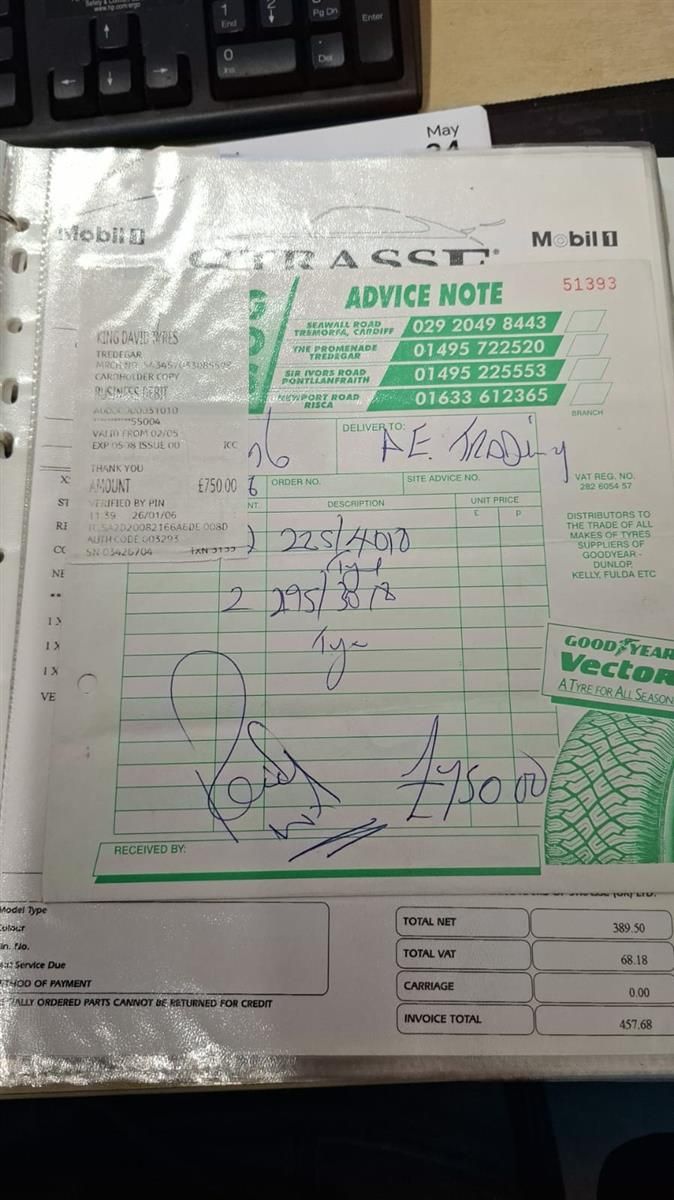 1
End
2
Pg Dn
Enter
0
Ins
.
Del
May
24
Mobil 1
STRASSE
Mobil 1
ADVICE NOTE
51393
SEAWALL ROAD
TREMORFA, CARDIFF
029 2049 8443
THE PROMENADE
TREDEGAR
01495 722520
SIR IVORS ROAD
PONTLLANFRAITH
01495 225553
NEWPORT ROAD
RISCA
01633 612365
BRANCH
KING DAVID TYRES
TREDEGAR
CARDHOLDER COPY
BUSINESS DEBIT
VALID FROM 02/05
EXP 05/08 ISSUE 00
ICC
THANK YOU
AMOUNT £750.00
VERIFIED BY PIN
11:39 26/01/06
AUTH CODE 003293
SN 03426704
DELIVER TO:
A.E. Trading
ORDER NO.
SITE ADVICE NO.
VAT REG. NO.
282 6054 57
DESCRIPTION
UNIT PRICE
£
P
DISTRIBUTORS TO
THE TRADE OF ALL
MAKES OF TYRES
SUPPLIERS OF
GOODYEAR -
DUNLOP,
KELLY, FULDA ETC
225/4018
2 295/3018
GOODYEAR
Vector
A TYRE FOR ALL SEASON
Paid
£750 00
RECEIVED BY:
Model Type
Colour
Service Due
METHOD OF PAYMENT
ORDERED PARTS CANNOT BE RETURNED FOR CREDIT
TOTAL NET 389.50
TOTAL VAT 68.18
CARRIAGE 0.00
INVOICE TOTAL 457.68